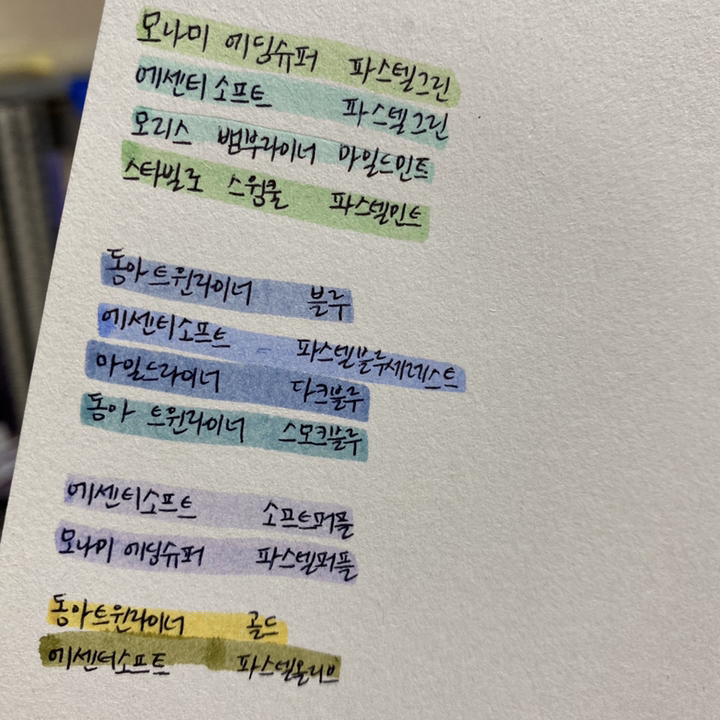 모나미 에딩슈퍼 파스텔그린
에센티소프트 파스텔그린
모리스 뱀부라이너 마일드민트
스타빌로 스윙쿨 파스텔민트
동아트윈라이너 블루
에센티소프트 파스텔블루세레스트
마일드라이너 다크블루
동아 트윈라이너 스모키블루
에센티소프트 소프트퍼플
모나미 에딩슈퍼 파스텔퍼플
동아트윈라이너 골드
에센티소프트 파스텔올리브